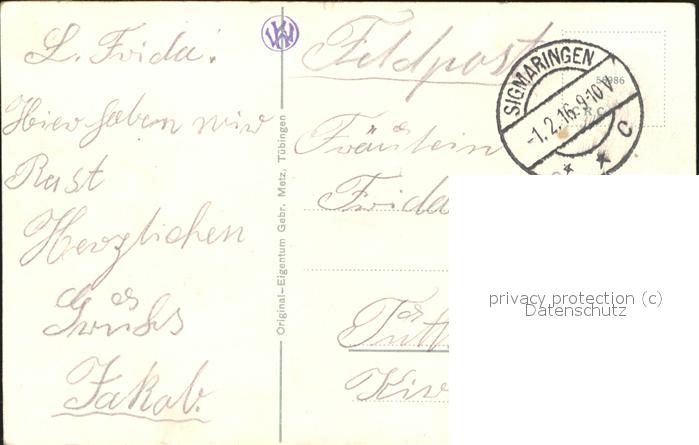 L. Frida!
Hier haben wir
Rast
Herzlichen
Gruhs
Jakob.
Original-Eigentum Gebr. Metz, Tübingen
Feldpost
SIGMARINGEN
-1.2.16.9-10V
C
Fräulein
Frida
privacy protection (c)
Datenschutz